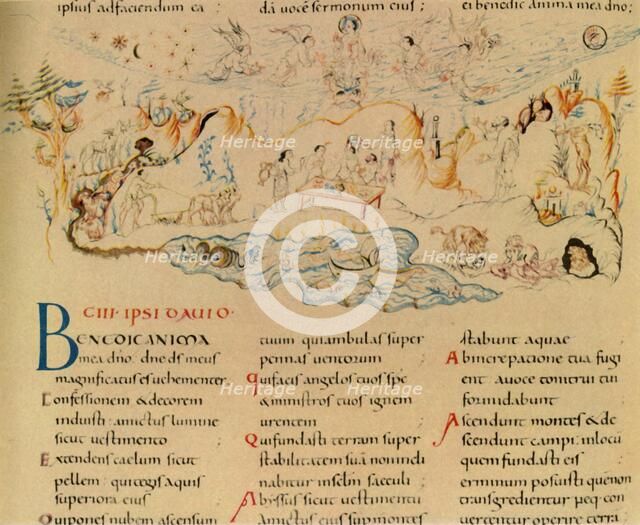 ipsius adfaciendum ea ;
da uoce sermonum eius ;
ei benedic anima mea dno ;
CIII · IPSI DAUID ·
BENEDIC ANIMA
mea dno · dne ds meus
magnificatus es uehementer
Confessionem & decorem
induisti amictus lumine
sicut uestimento
Extendens caelum sicut
pellem qui tegis aquis
superiora eius
Qui pones nubem ascensum
tuum qui ambulas super
pennas uentorum ;
Qui facis angelos tuos sps
& ministros tuos ignem
urentem ;
Qui fundasti terram super
stabilitatem suā non incli
nabitur in sclm saeculi ;
Abyssus sicut uestimentū
amictus eius sup montes
stabunt aquae
Ab increpatione tua fugi
ent a uoce tonitrui tui
formidabunt
Ascendunt montes & de
scendunt campi in locū
quem fundasti eis
terminum posuisti quem non
transgredientur neq con
uertentur operire terrā
Heritage
Heritage
Heritage
Heritage
Heritage
Heritage
Heritage
Heritage
Heritage